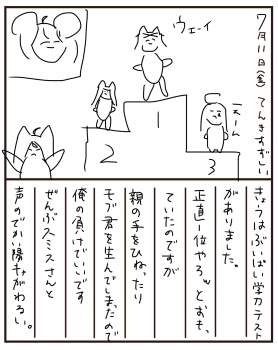 7月11日(金) てんきすずしい
ウェーイ
1
2
3
きょうはぶいぱい学力テスト
がありました。
正直1位やろwとおも、
ていたのですが
親の手をひねったり
モブ君を生んでしまったので
俺の負けでいいです
ぜんぶスミスさんと
声のでかい陽キャがわるい。